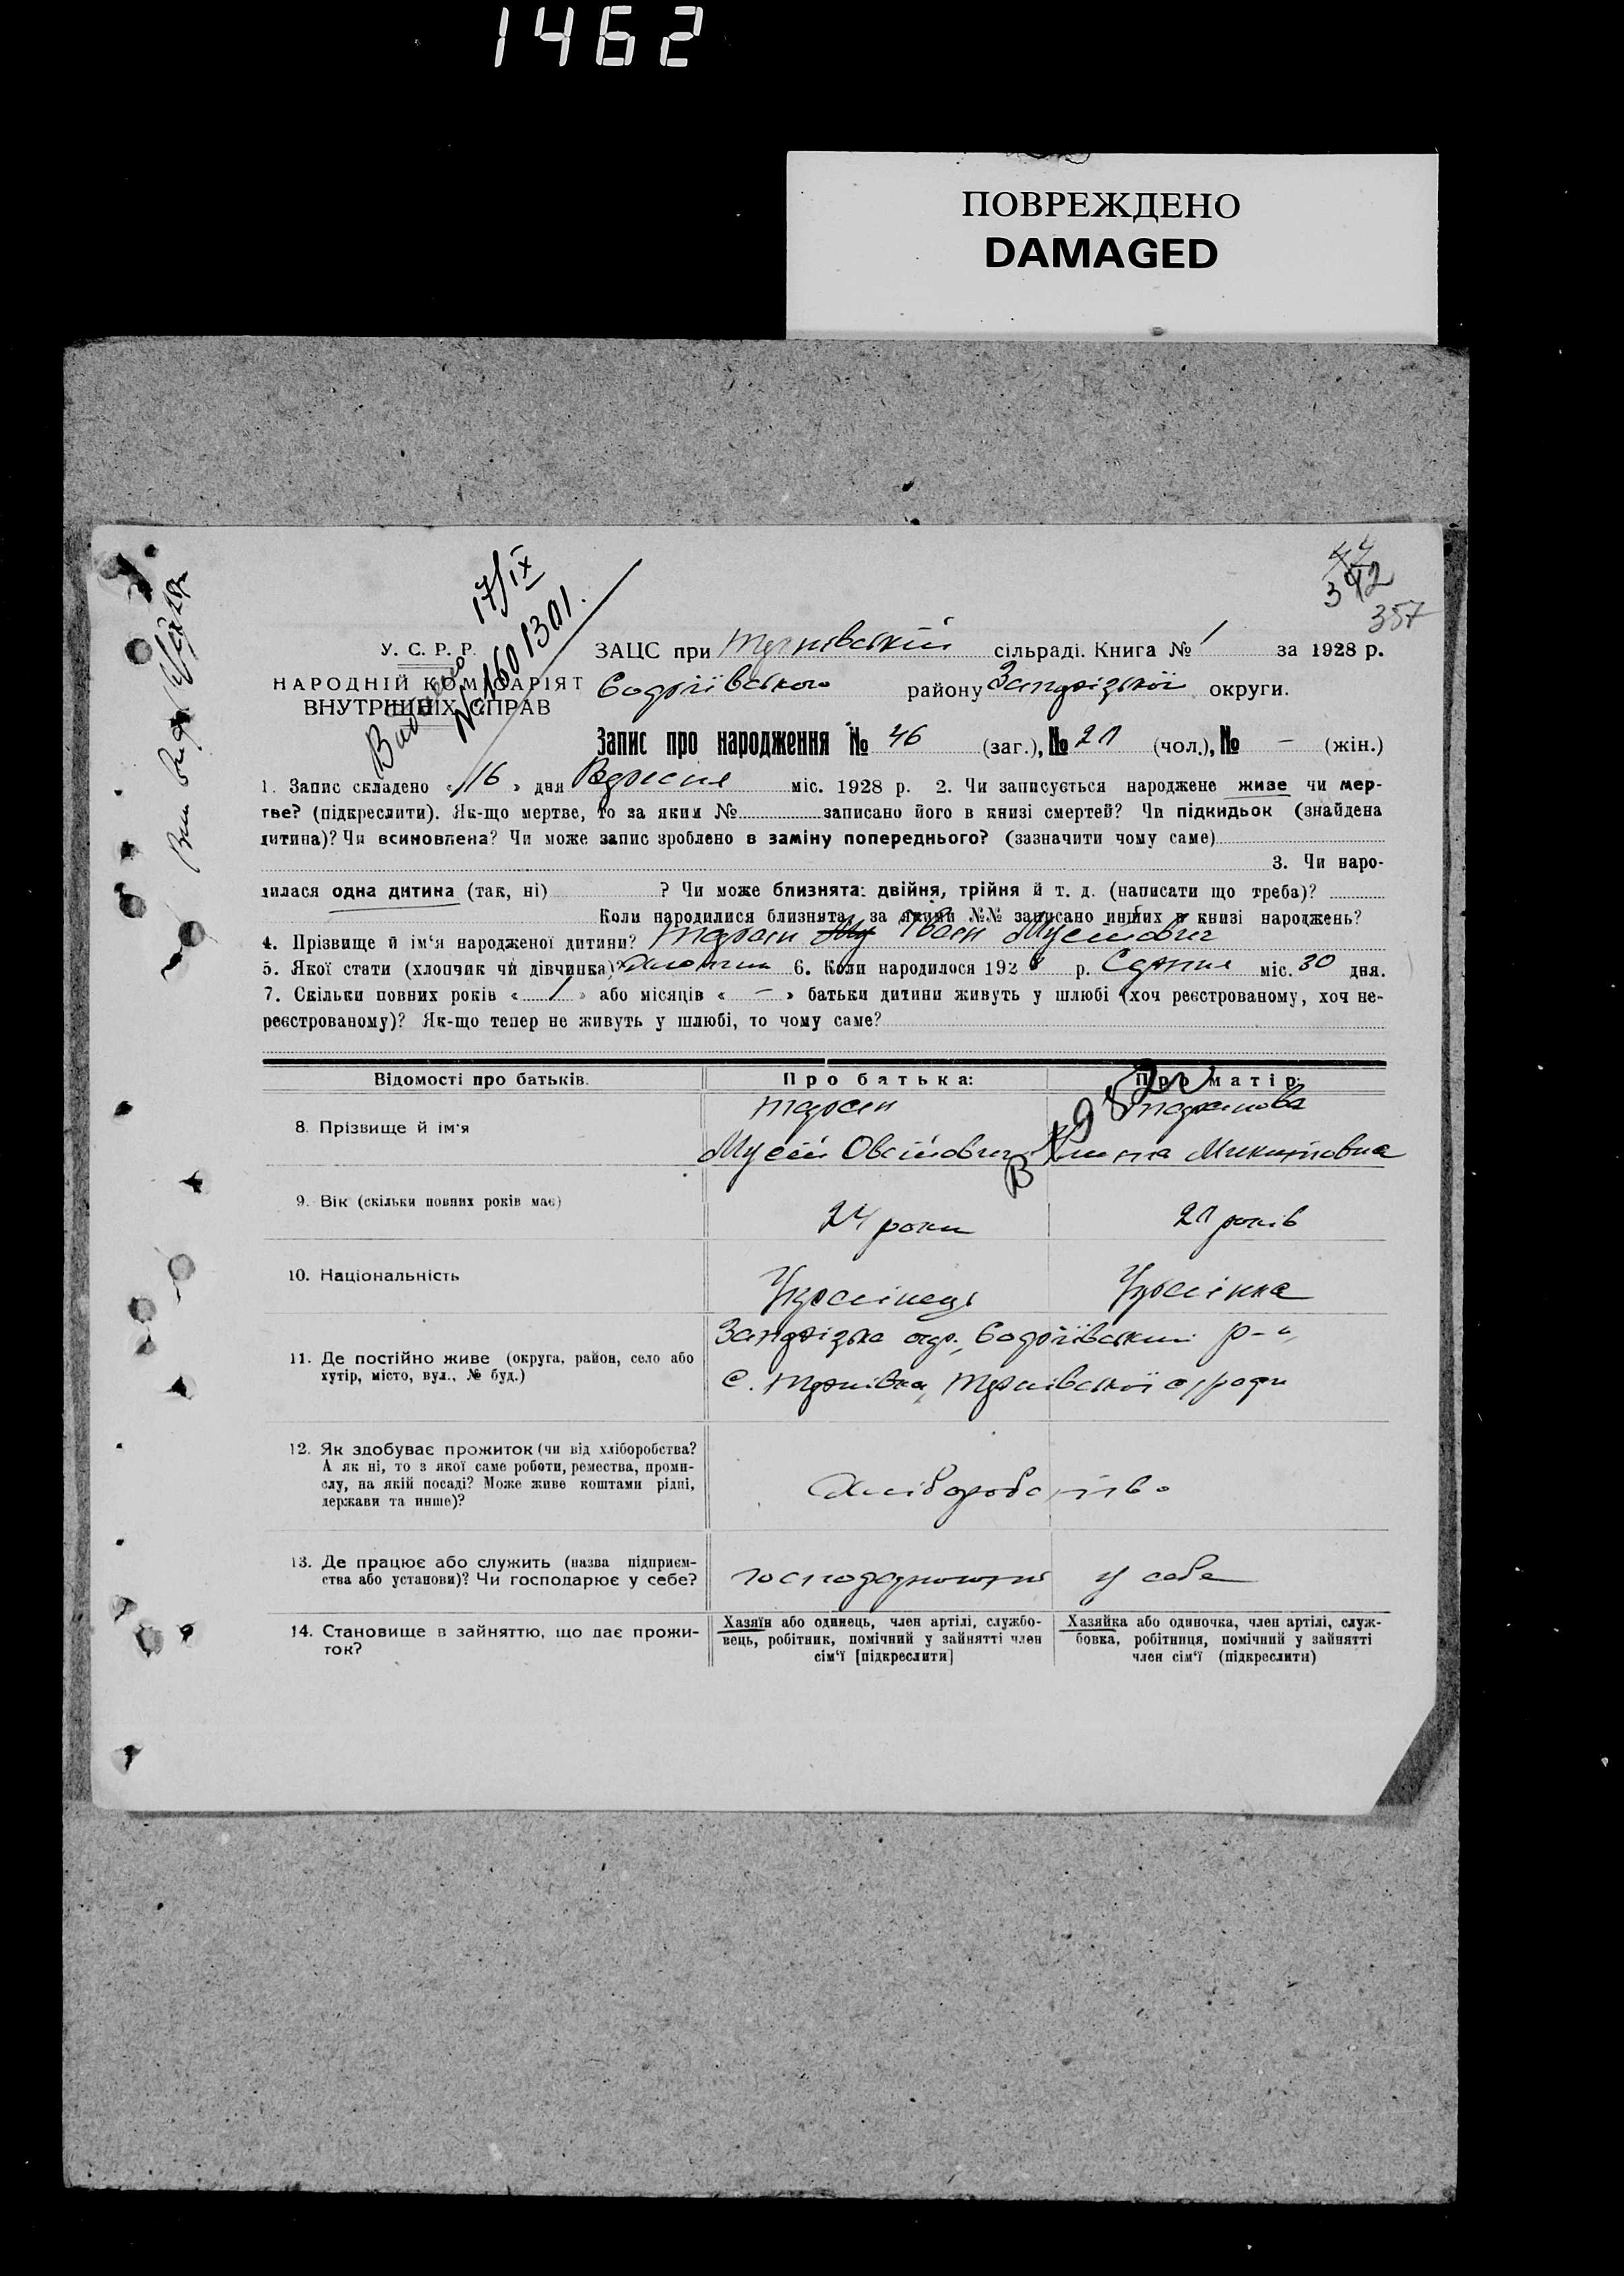 1462
ПОВРЕЖДЕНО
DAMAGED
17/IX
№ 1601301.
342
357
У. С. Р. Р.
НАРОДНІЙ КОМІСАРІЯТ
ВНУТРІШНІХ СПРАВ
ЗАЦС при Тернівській сільраді. Книга № 1 за 1928 р.
району Запорізької округи.
Запис про народження № 46 (заг.), № 21 (чол.), № – (жін.)
1. Запис складено « 16 » дня Вересня міс. 1928 р. 2. Чи записується народжене живе чи мер-
тве? (підкреслити). Як-що мертве, то за яким № записано його в книзі смертей? Чи підкидьок (знайдена
дитина)? Чи всиновлена? Чи може запис зроблено в заміну попереднього? (зазначити чому саме)
3. Чи наро-
дилася одна дитина (так, ні) ? Чи може близнята: двійня, трійня й т. д. (написати що треба)?
Коли народилися близнята, за якими №№ записано инших в книзі народжень?
4. Прізвище й ім'я народженої дитини? Таран Іван Мусійович
5. Якої стати (хлопчик чи дівчинка)? Хлопчик 6. Коли народилося 1928 р. Серпня міс. 30 дня.
7. Скільки повних років « 1 » або місяців « – » батьки дитини живуть у шлюбі (хоч реєстрованому, хоч не-
реєстрованому)? Як-що тепер не живуть у шлюбі, то чому саме?
Відомості про батьків. Про батька: Про матір:
8. Прізвище й ім'я Таран Таранова
Мусій Овсійович Микитовна
9. Вік (скільки повних років має) 24 роки 21 років
10. Національність Українець Українка
11. Де постійно живе (округа, район, село або
хутір, місто, вул., № буд.)
Запорізька окр., р-н
с. Тернівка, Тернівської с/ради
12. Як здобуває прожиток (чи від хліборобства?
А як ні, то з якої саме роботи, ремества, проми-
слу, на якій посаді? Може живе коштами рідні,
держави та инше)?
Хліборобство
13. Де працює або служить (назва підприєм-
ства або установи)? Чи господарює у себе?
у себе
14. Становище в зайняттю, що дає прожи-
ток?
Хазяїн або одинець, член артілі, службо-
вець, робітник, помічний у зайнятті член
сім'ї [підкреслити]
Хазяйка або одиночка, член артілі, служ-
бовка, робітниця, помічний у зайнятті
член сім'ї (підкреслити)